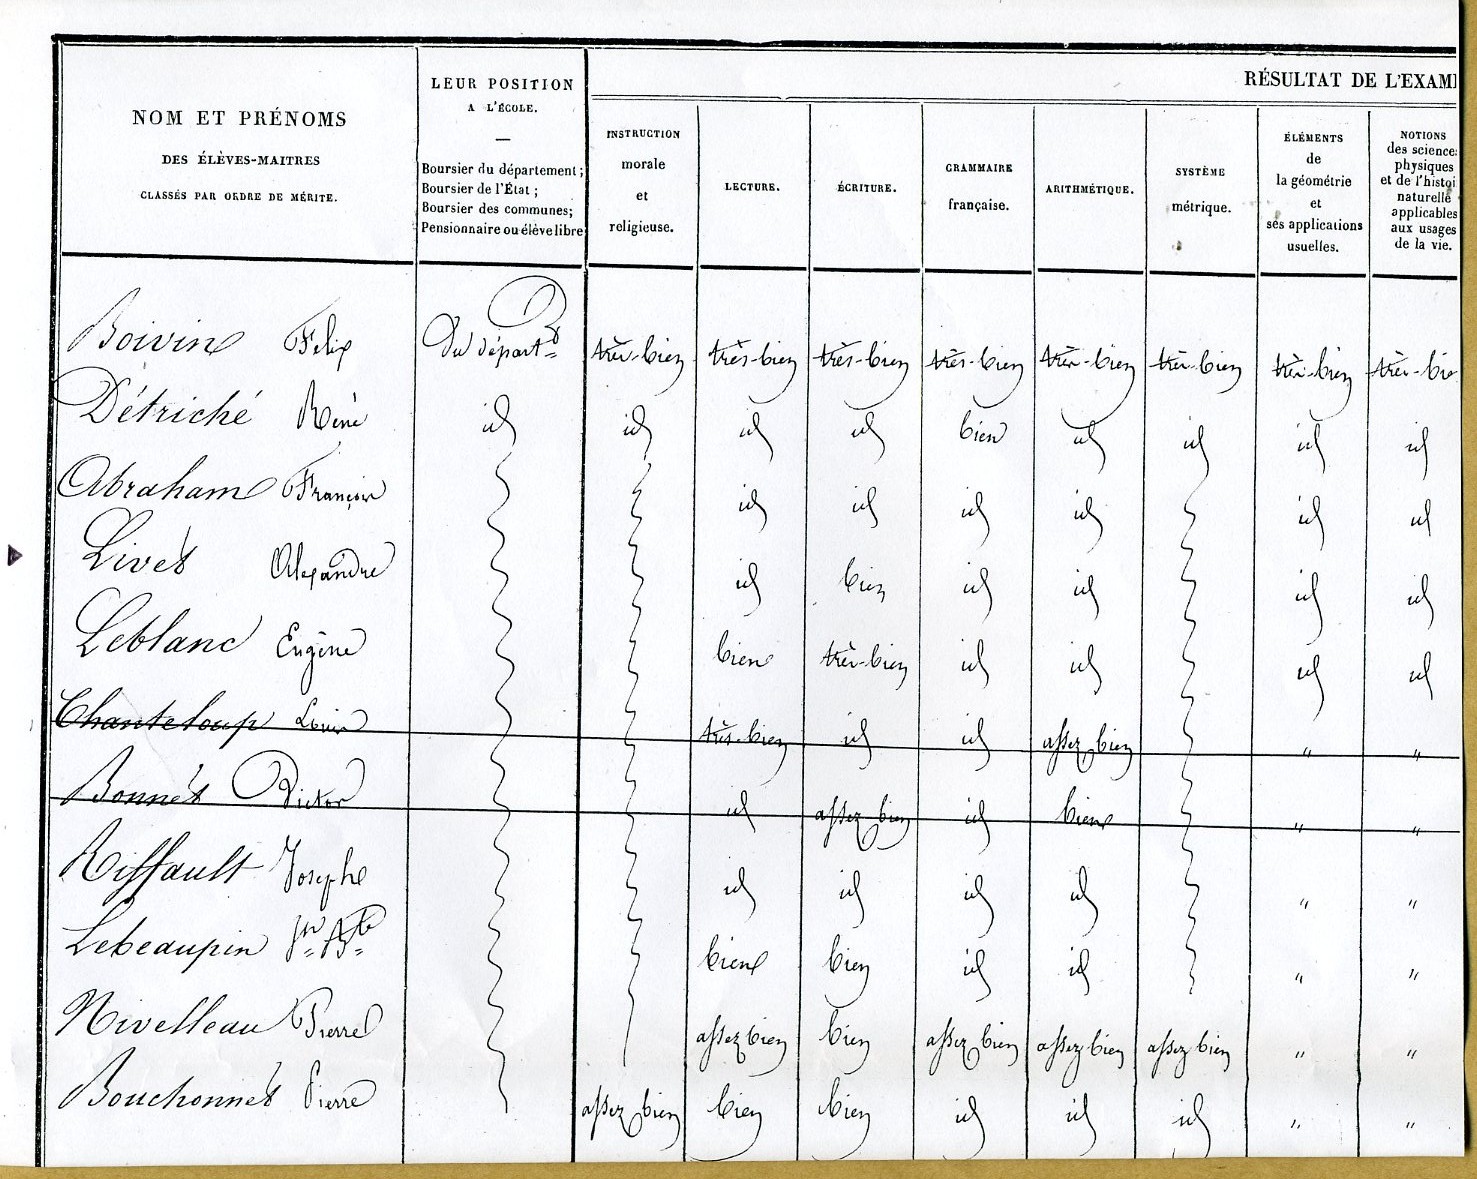 RÉSULTAT DE L'EXAM
NOM ET PRÉNOMS
DES ÉLÈVES-MAITRES
CLASSÉS PAR ORDRE DE MÉRITE.
LEUR POSITION
A L'ÉCOLE.
Boursier du département;
Boursier de l'État;
Boursier des communes;
Pensionnaire ou élève libre
INSTRUCTION
morale
et
religieuse.
LECTURE.
ÉCRITURE.
GRAMMAIRE
française.
ARITHMÉTIQUE.
SYSTÈME
métrique.
ÉLÉMENTS
de
la géométrie
et
ses applications
usuelles.
NOTIONS
des sciences
physiques
et de l'histoi
naturelle
applicables
aux usages
de la vie.
Boivin Felix Du départt très-bien très-bien très-bien très-bien très-bien très-bien très-bien très-bie
Détriché René id id id id bien id id id id
Abraham François id id id id id id
Livet Alexandre id bien id id id id
Leblanc Eugène bien très-bien id id id id
Chanteloup Louis très-bien id id assez bien " "
Bonnet Victor id assez bien id bien " "
Riffault Joseph id id id id " "
Lebeaupin Jn Bte bien bien id id " "
Nivelleau Pierre assez bien bien assez bien assez bien assez bien " "
Bouchonnet Pierre assez bien bien bien id id id " "